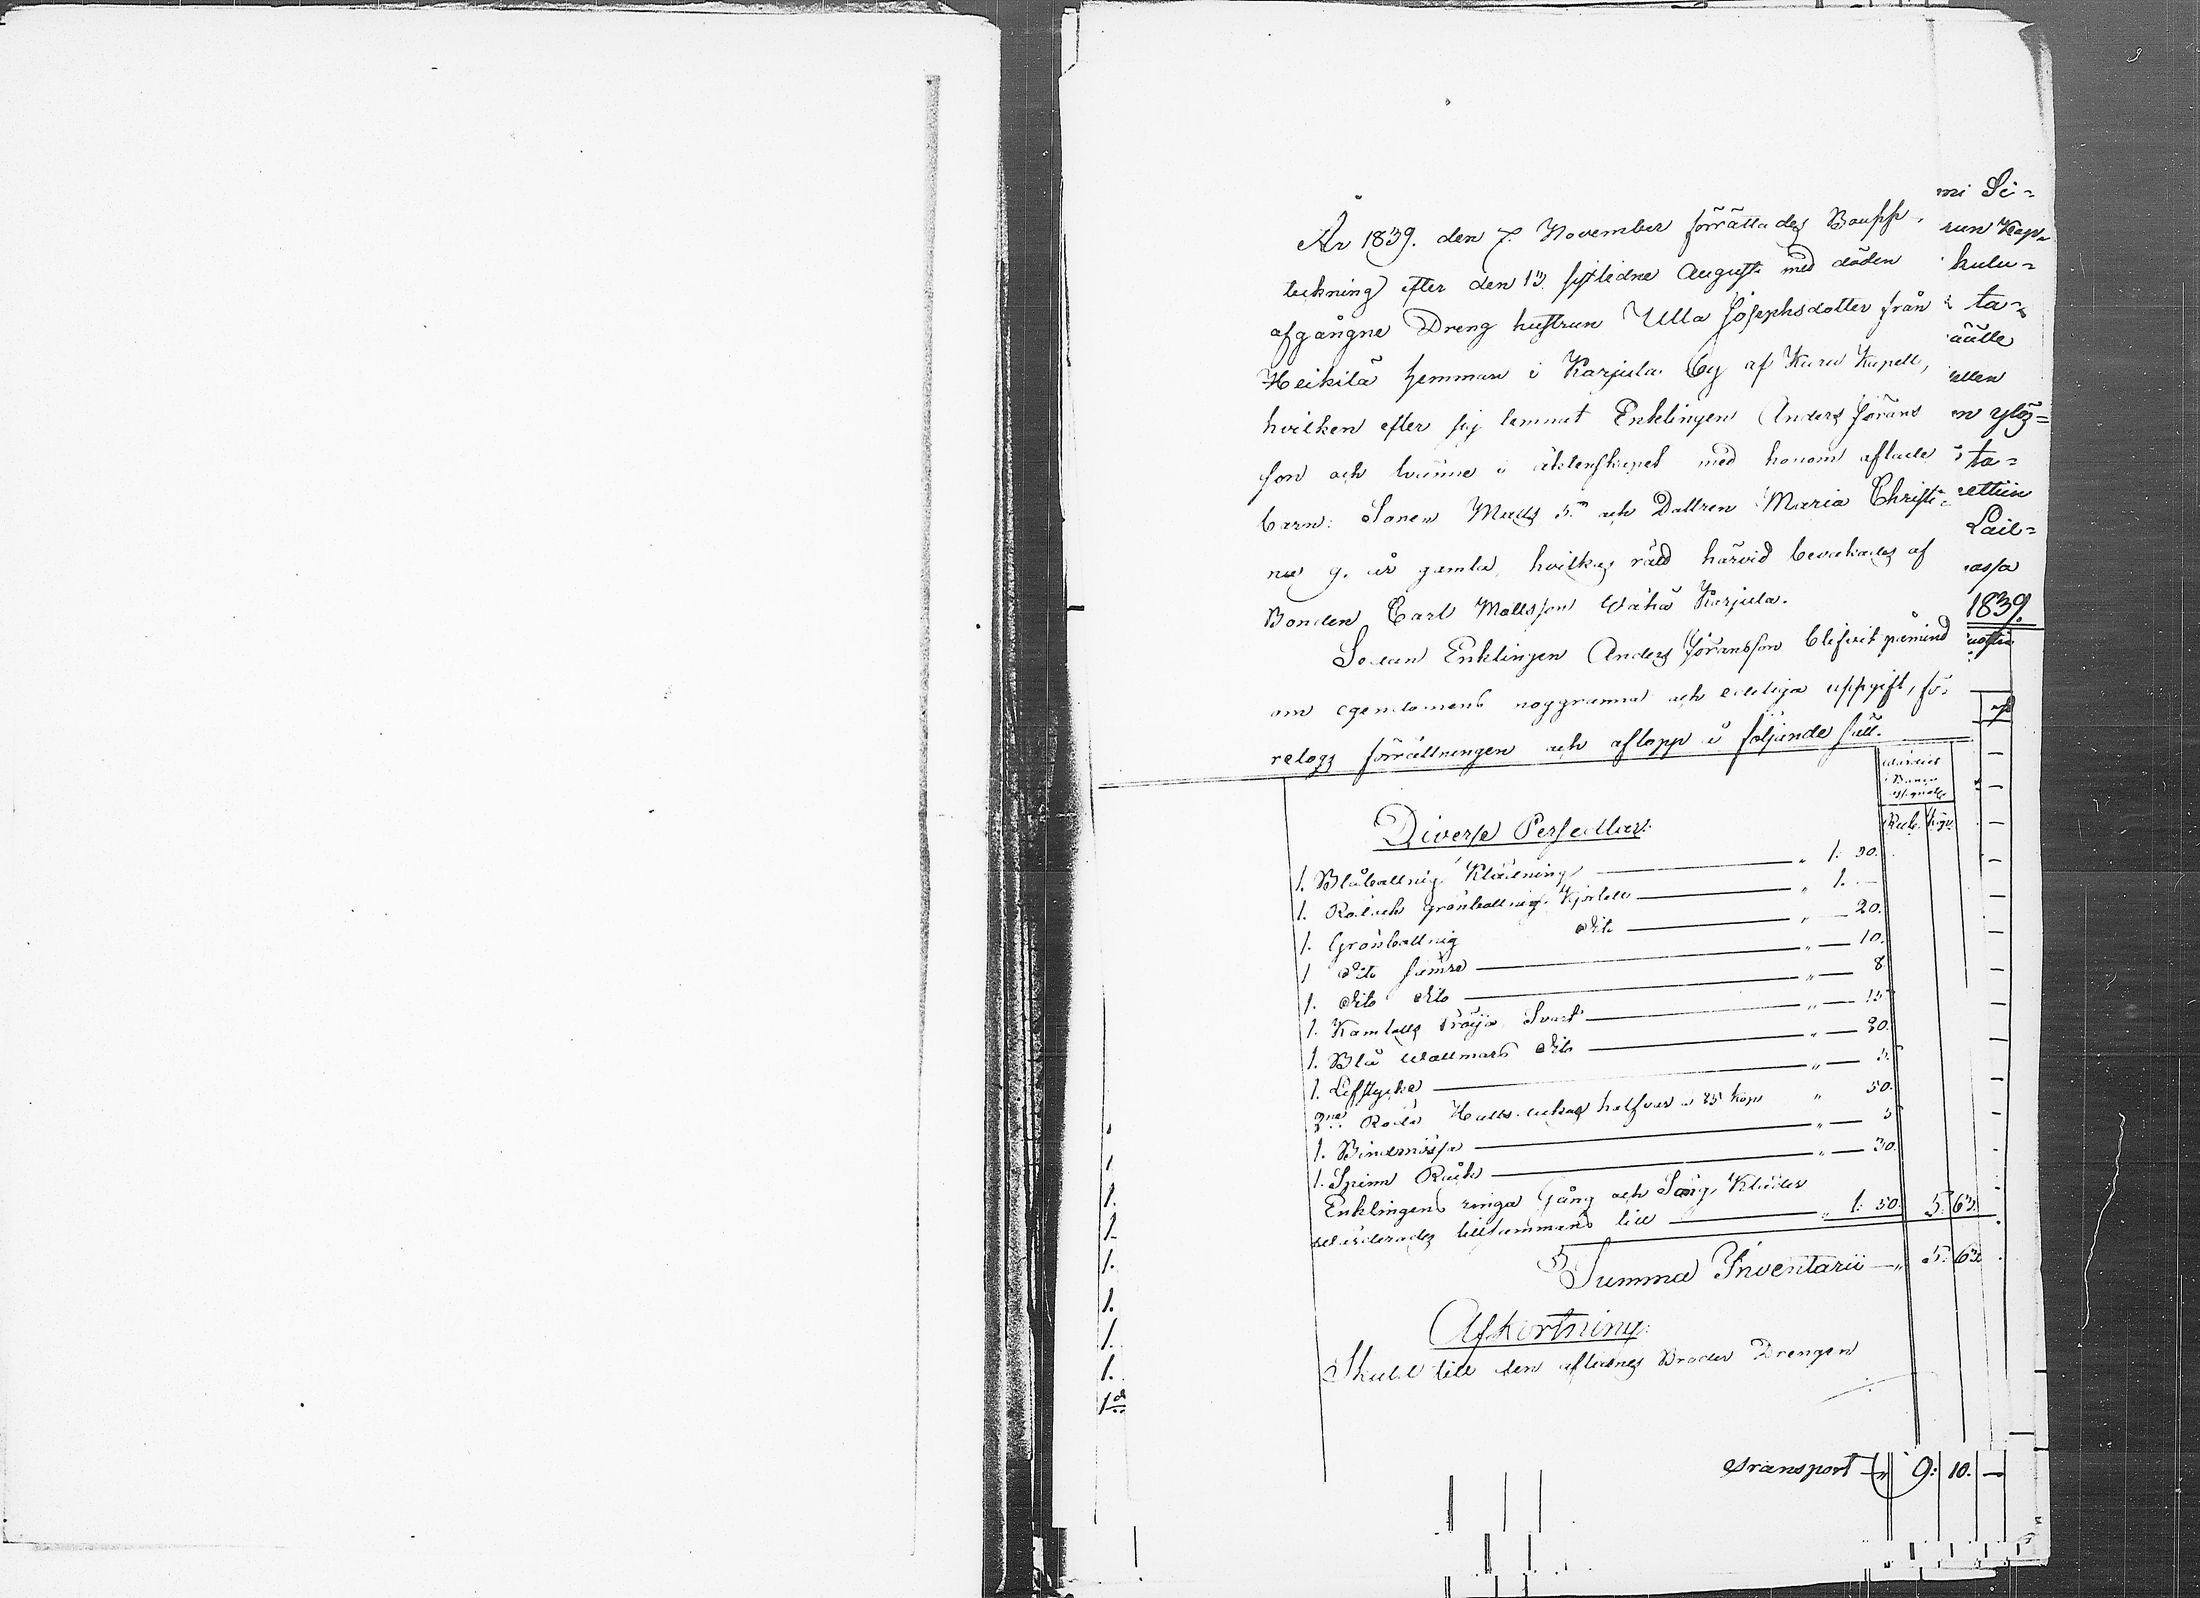 År 1839. den 7. November förrättades Boupp-
tekning efter den 13. sistledne Augusti med döden
afgångne Dreng hustrun Ulla Josephsdotter från
Heikilä hemman i Karjula by af Kuru Kapell,
hvilken efter sig lemnat Enklingen Anders Jörans
son och tvänne i äktenskapet med honom aflade
barn: Sonen Matts 5. och Dottren Maria Christi-
na 9. år gamla, hvilkas rätt härvid bevakades af
Bonden Carl Mattsson Wähä Karjula.
Sedan Enklingen Anders Jöransson blifvit påmind
om egendomens noggranna och edeliga uppgift, fö-
retogs förrättningen och aflopp i följande sätt.
Värdiet
i Banco
Rub. Kop.
Diverse Persedlar:
1. Blåbottnig Klädning " 1. 20.
1. Röd och grönbottnig Kjortell " 1. —
1. Grönbottnig dito " — 20.
1 dito sämre " — 10.
1. dito dito " — 8
1. Kamlotts tröija Svart " — 15
1. Blå Wallmars dito " — 20.
1. Lifstycke " — 5
2ne Röda Halsdukar halfvar a 25 kop " 50.
1. Bindmössa " — 5
1. Spinn Råck " — 30.
Enklingens ringa Gång och Säng Kläder
värderades tillsammans till " 1. 50. 5. 63.
Summa Inventarii " 5. 63.
Afkortning:
Skuld till den aflidnes Broder Drengen
mi Si=
run Kap=
kulu=
ta=
ällä
ellen
n ylös=
ta=
ettiin
Lail=
assa
1839.
1.
1.
1.
1.
1.
1.
1d
Transport " 9: 10. —